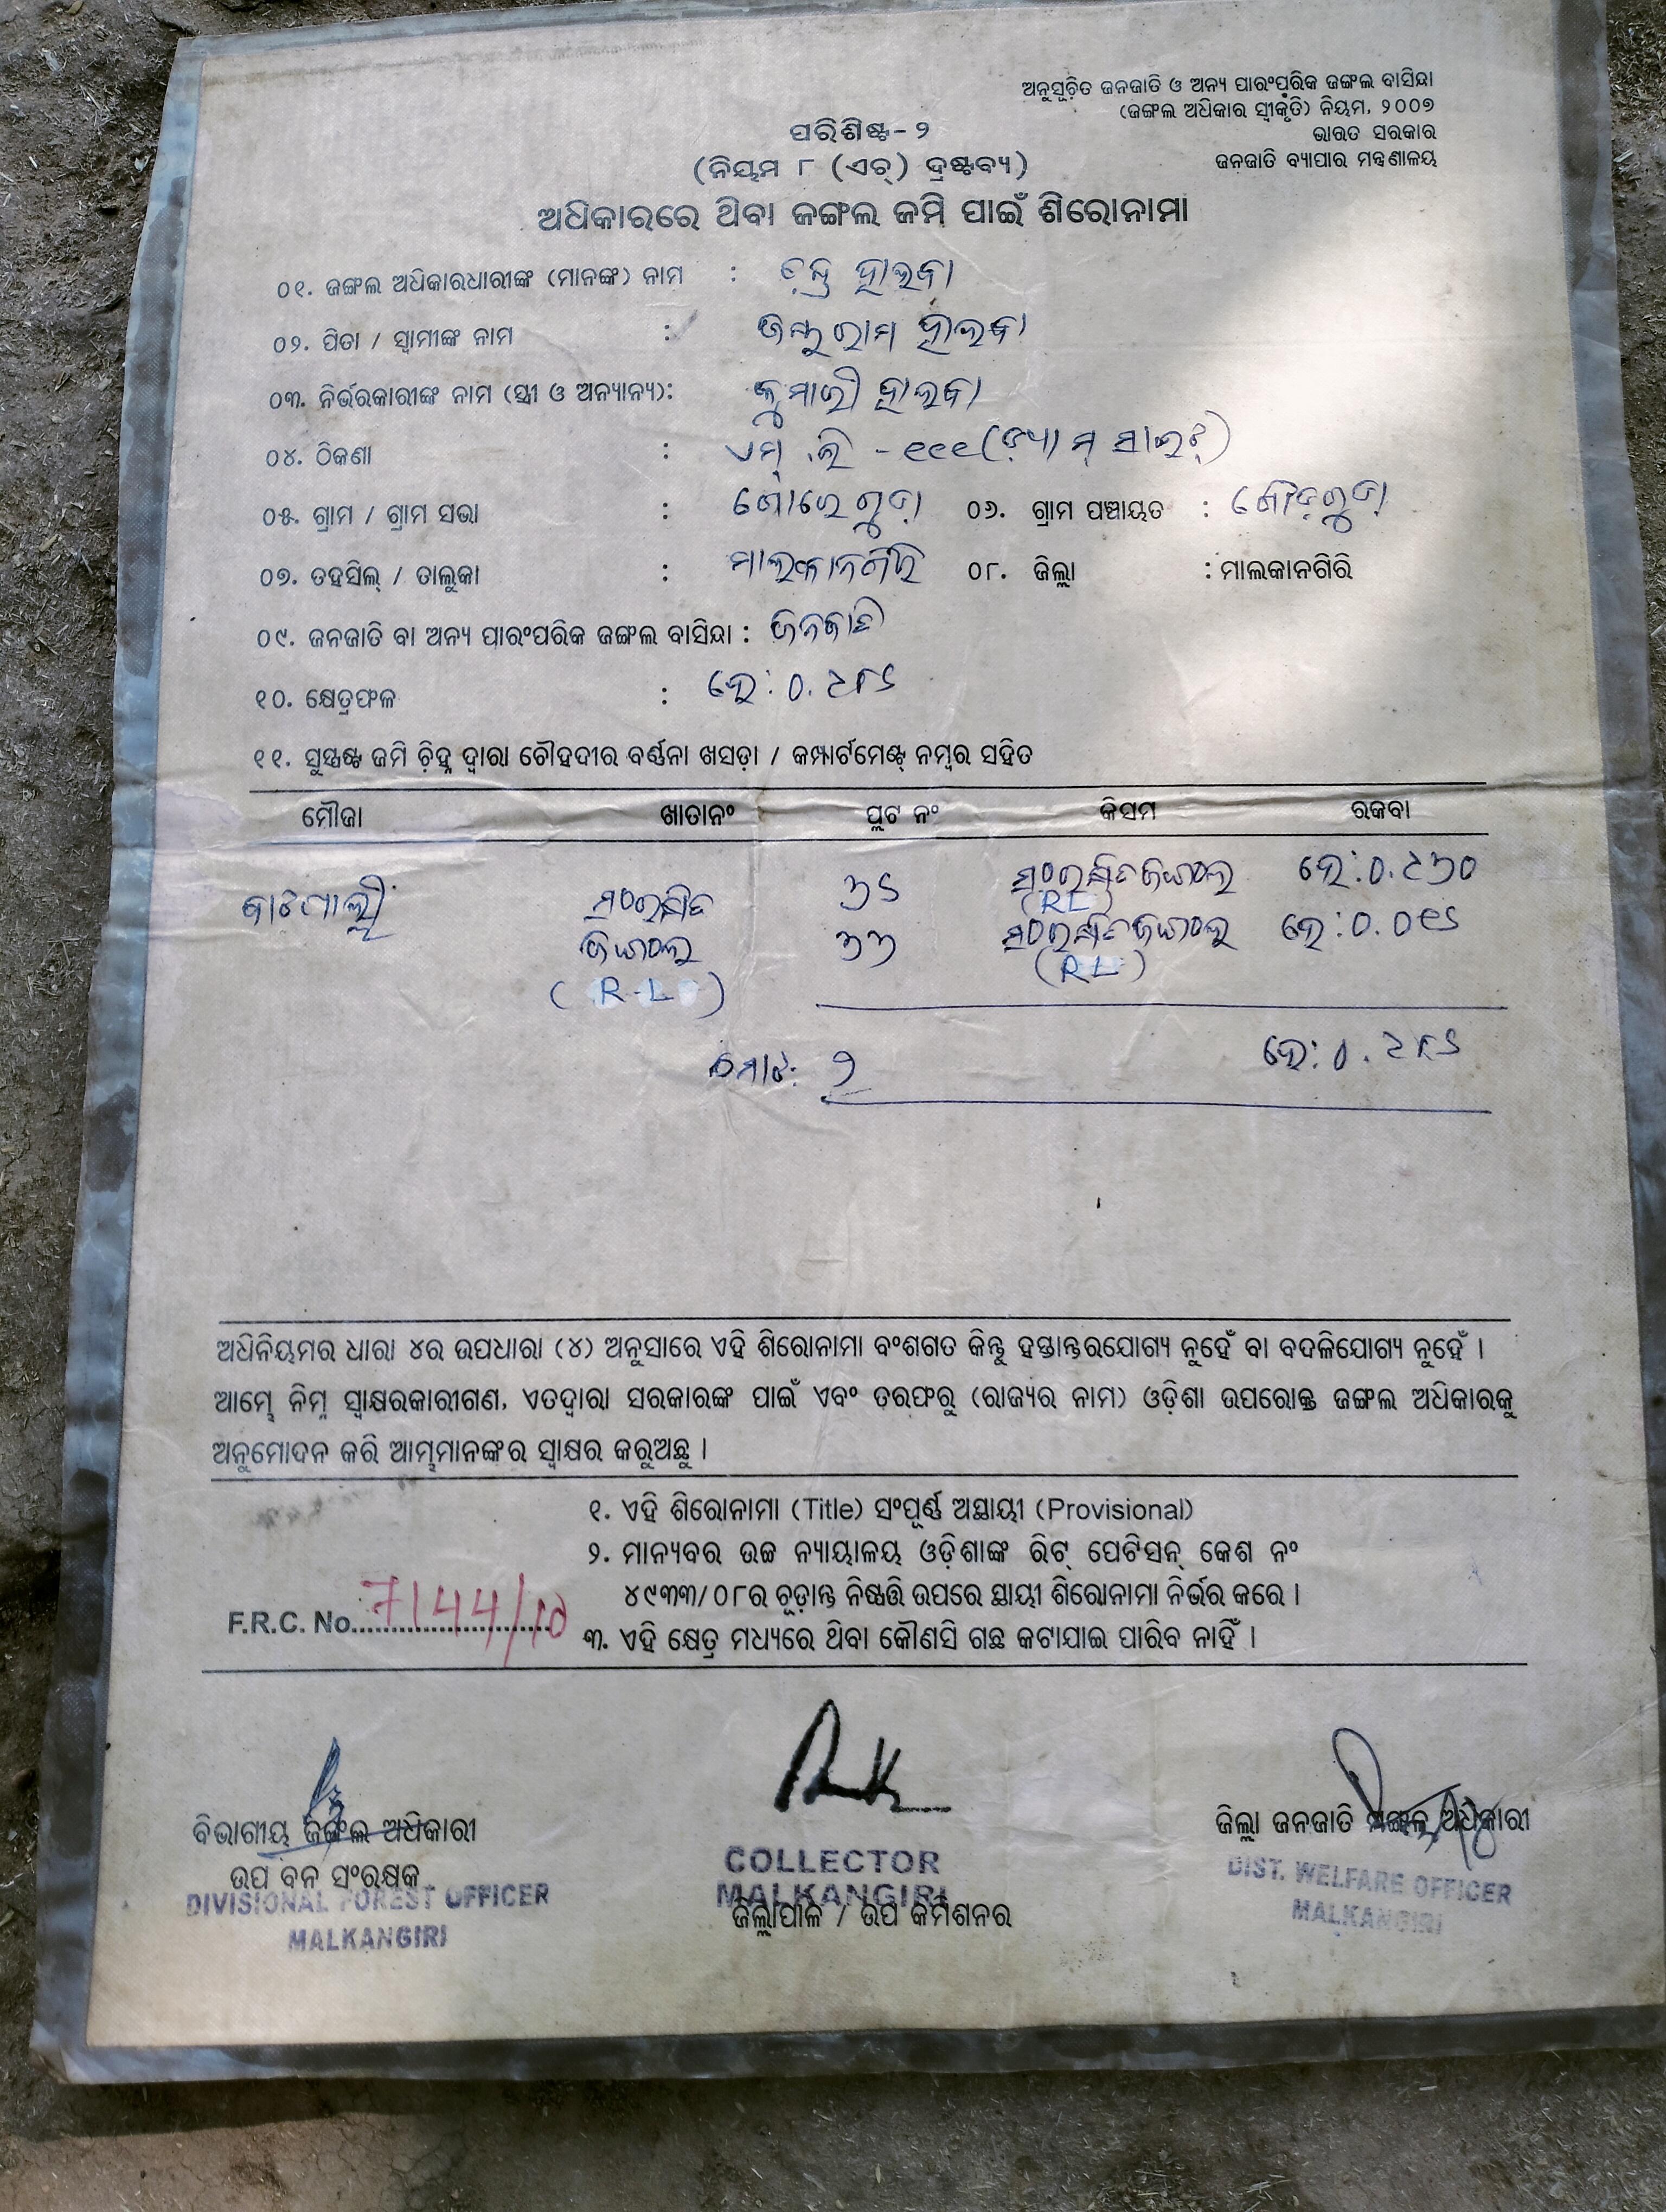 ଅନୁସୂଚିତ ଜନଜାତି ଓ ଅନ୍ୟ ପାରଂପରିକ ଜଙ୍ଗଲ ବାସିନ୍ଦା
(ଜଙ୍ଗଲ ଅଧିକାର ସ୍ୱୀକୃତି) ନିୟମ, ୨୦୦୭
ଭାରତ ସରକାର
ଜନଜାତି ବ୍ୟାପାର ମନ୍ତ୍ରଣାଳୟ
ପରିଶିଷ୍ଟ-୨
(ନିୟମ ୮ (ଏଚ୍) ଦ୍ରଷ୍ଟବ୍ୟ)
ଅଧିକାରରେ ଥିବା ଜଙ୍ଗଲ ଜମି ପାଇଁ ଶିରୋନାମା
୦୧. ଜଙ୍ଗଲ ଅଧିକାରଧାରୀଙ୍କ (ମାନଙ୍କ) ନାମ : ହାଲବା
୦୨. ପିତା / ସ୍ୱାମୀଙ୍କ ନାମ : ହାଲବା
୦୩. ନିର୍ଭରକାରୀଙ୍କ ନାମ (ସ୍ତ୍ରୀ ଓ ଅନ୍ୟାନ୍ୟ): କୁମାରୀ ହାଲବା
୦୪. ଠିକଣା : ଏମ୍.ଭି -୧୧୧ (ଡ୍ୟାମ୍ ସାଇଟ୍)
୦୫. ଗ୍ରାମ / ଗ୍ରାମ ସଭା : ୦୬. ଗ୍ରାମ ପଞ୍ଚାୟତ :
୦୭. ତହସିଲ୍ / ତାଲୁକା : ମାଲକାନଗିରି ୦୮. ଜିଲ୍ଲା : ମାଲକାନଗିରି
୦୯. ଜନଜାତି ବା ଅନ୍ୟ ପାରଂପରିକ ଜଙ୍ଗଲ ବାସିନ୍ଦା : ଜନଜାତି
୧୦. କ୍ଷେତ୍ରଫଳ : ହେ: ୦.୨୮୫
୧୧. ସୁସ୍ପଷ୍ଟ ଜମି ଚିହ୍ନ ଦ୍ୱାରା ଚୌହଦୀର ବର୍ଣ୍ଣନା ଖସଡ଼ା / କମ୍ପାର୍ଟମେଣ୍ଟ୍ ନମ୍ବର ସହିତ
ମୌଜା ଖାତାନଂ ପ୍ଲଟ ନଂ କିସମ ରକବା
ସଂରକ୍ଷିତ ୩୫ ସଂରକ୍ଷିତ ଜଙ୍ଗଲ ହେ:୦.୨୩୦
(RL)
ଜଙ୍ଗଲ ୩୩ ସଂରକ୍ଷିତ ଜଙ୍ଗଲ ହେ:୦.୦୧୫
(R-L) (RL)
ମୋଟ: ୨ ହେ: ୦.୨୮୫
ଅଧିନିୟମର ଧାରା ୪ର ଉପଧାରା (୪) ଅନୁସାରେ ଏହି ଶିରୋନାମା ବଂଶଗତ କିନ୍ତୁ ହସ୍ତାନ୍ତରଯୋଗ୍ୟ ନୁହେଁ ବା ବଦଳିଯୋଗ୍ୟ ନୁହେଁ ।
ଆମ୍ଭେ ନିମ୍ନ ସ୍ୱାକ୍ଷରକାରୀଗଣ, ଏତଦ୍ଵାରା ସରକାରଙ୍କ ପାଇଁ ଏବଂ ତରଫରୁ (ରାଜ୍ୟର ନାମ) ଓଡ଼ିଶା ଉପରୋକ୍ତ ଜଙ୍ଗଲ ଅଧିକାରକୁ
ଅନୁମୋଦନ କରି ଆମ୍ଭମାନଙ୍କର ସ୍ୱାକ୍ଷର କରୁଅଛୁ ।
୧. ଏହି ଶିରୋନାମା (Title) ସଂପୂର୍ଣ୍ଣ ଅସ୍ଥାୟୀ (Provisional)
୨. ମାନ୍ୟବର ଉଚ୍ଚ ନ୍ୟାୟାଳୟ ଓଡ଼ିଶାଙ୍କ ରିଟ୍ ପେଟିସନ୍ କେଶ ନଂ
୪୯୩୩/୦୮ର ଚୂଡ଼ାନ୍ତ ନିଷ୍ପତ୍ତି ଉପରେ ସ୍ଥାୟୀ ଶିରୋନାମା ନିର୍ଭର କରେ ।
F.R.C. No. 7144/10
୩. ଏହି କ୍ଷେତ୍ର ମଧ୍ୟରେ ଥିବା କୌଣସି ଗଛ କଟାଯାଇ ପାରିବ ନାହିଁ ।
ବିଭାଗୀୟ ଜଙ୍ଗଲ ଅଧିକାରୀ
ଉପ ବନ ସଂରକ୍ଷକ
DIVISIONAL FOREST OFFICER
MALKANGIRI
COLLECTOR
MALKANGIRI
ଜିଲ୍ଲାପାଳ / ଉପ କମିଶନର
ଜିଲ୍ଲା ଜନଜାତି ମଙ୍ଗଳ ଅଧିକାରୀ
DIST. WELFARE OFFICER
MALKANGIRI